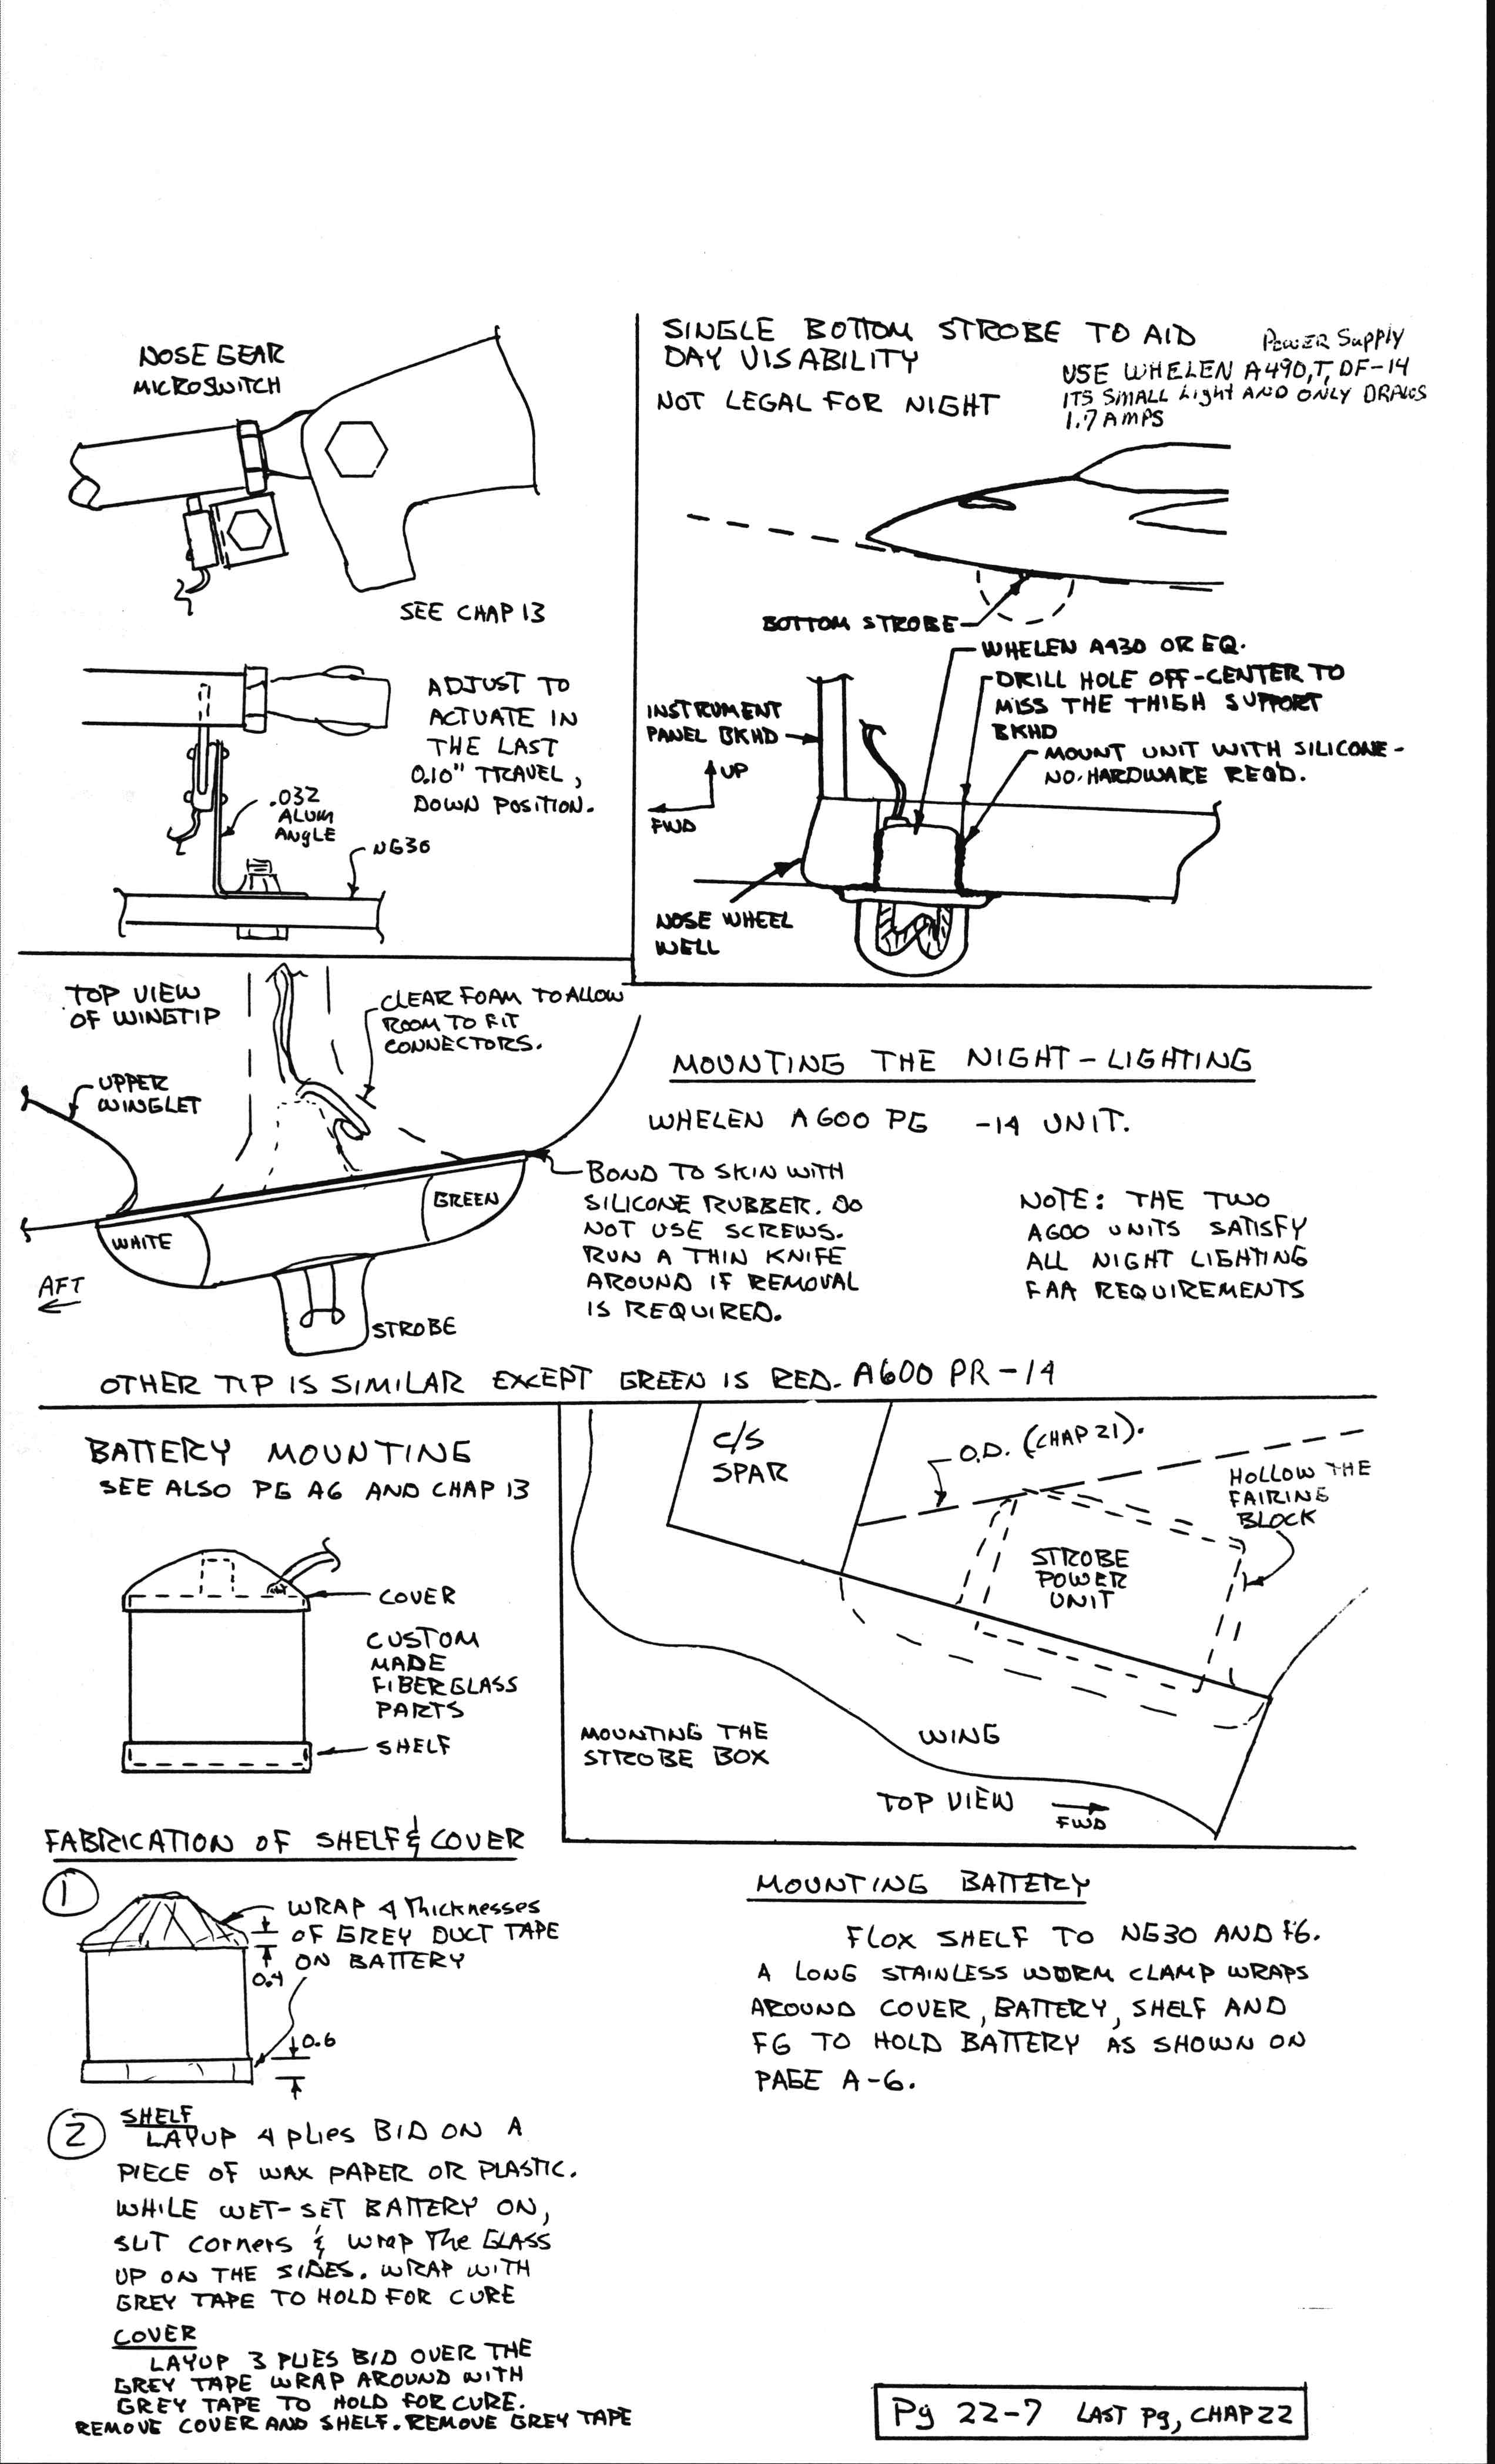 NOSE GEAR
MICROSWITCH
SEE CHAP 13
ADJUST TO
ACTUATE IN
THE LAST
0.10" TRAVEL,
DOWN POSITION.
.032
ALUM
ANGLE
NG30
SINGLE BOTTOM STROBE TO AID
DAY VISABILITY
NOT LEGAL FOR NIGHT
POWER SUPPLY
USE WHELEN A490,T,DF-14
ITS SMALL Light AND ONLY DRAWS
1.7 AMPS
BOTTOM STROBE
WHELEN A430 OR EQ.
DRILL HOLE OFF-CENTER TO
MISS THE THIGH SUPPORT
BKHD
MOUNT UNIT WITH SILICONE-
NO. HARDWARE REQ'D.
INSTRUMENT
PANEL BKHD
UP
FWD
NOSE WHEEL
WELL
TOP VIEW
OF WINGTIP
CLEAR FOAM TO ALLOW
ROOM TO FIT
CONNECTORS.
UPPER
WINGLET
GREEN
WHITE
AFT
STROBE
MOUNTING THE NIGHT-LIGHTING
WHELEN A600 PG -14 UNIT.
BOND TO SKIN WITH
SILICONE RUBBER. DO
NOT USE SCREWS.
RUN A THIN KNIFE
AROUND IF REMOVAL
IS REQUIRED.
NOTE: THE TWO
A600 UNITS SATISFY
ALL NIGHT LIGHTING
FAA REQUIREMENTS
OTHER TIP IS SIMILAR EXCEPT GREEN IS RED. A600 PR-14
BATTERY MOUNTING
SEE ALSO PG A6 AND CHAP 13
COVER
CUSTOM
MADE
FIBERGLASS
PARTS
SHELF
C/S
SPAR
O.D. (CHAP 21).
HOLLOW THE
FAIRING
BLOCK
STROBE
POWER
UNIT
MOUNTING THE
STROBE BOX
WING
TOP VIEW
FWD
FABRICATION OF SHELF & COVER
1
WRAP 4 Thicknesses
OF GREY DUCT TAPE
ON BATTERY
0.4
0.6
2
SHELF
LAYUP 4 plies BID ON A
PIECE OF WAX PAPER OR PLASTIC.
WHILE WET-SET BATTERY ON,
SLIT corners & wrap The GLASS
UP ON THE SIDES. WRAP WITH
GREY TAPE TO HOLD FOR CURE
COVER
LAYUP 3 PLIES BID OVER THE
GREY TAPE WRAP AROUND WITH
GREY TAPE TO HOLD FOR CURE.
REMOVE COVER AND SHELF. REMOVE GREY TAPE
MOUNTING BATTERY
FLOX SHELF TO NG30 AND F6.
A LONG STAINLESS WORM CLAMP WRAPS
AROUND COVER, BATTERY, SHELF AND
F6 TO HOLD BATTERY AS SHOWN ON
PAGE A-6.
Pg 22-7 LAST Pg, CHAP 22